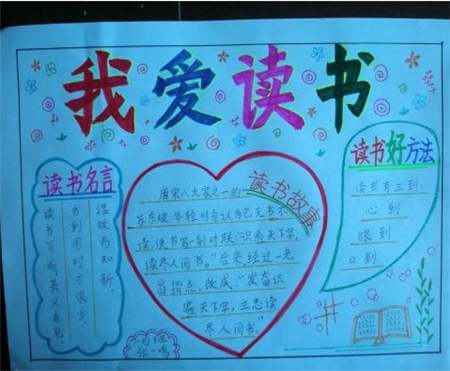 我爱读书
读书名言
温故而知新。
书到用时方恨少
读书百遍,其义自见。
读书故事
唐宋八大家之一的
苏东坡,年轻时自认为已无书不
读,便书写一副对联:“识遍天下字,
读尽人间书。”后来经过一老
翁指点,改成:“发奋识
遍天下字,立志读
尽人间书”
读书好方法
读书有三到:
心到
眼到
口到
张一鸣